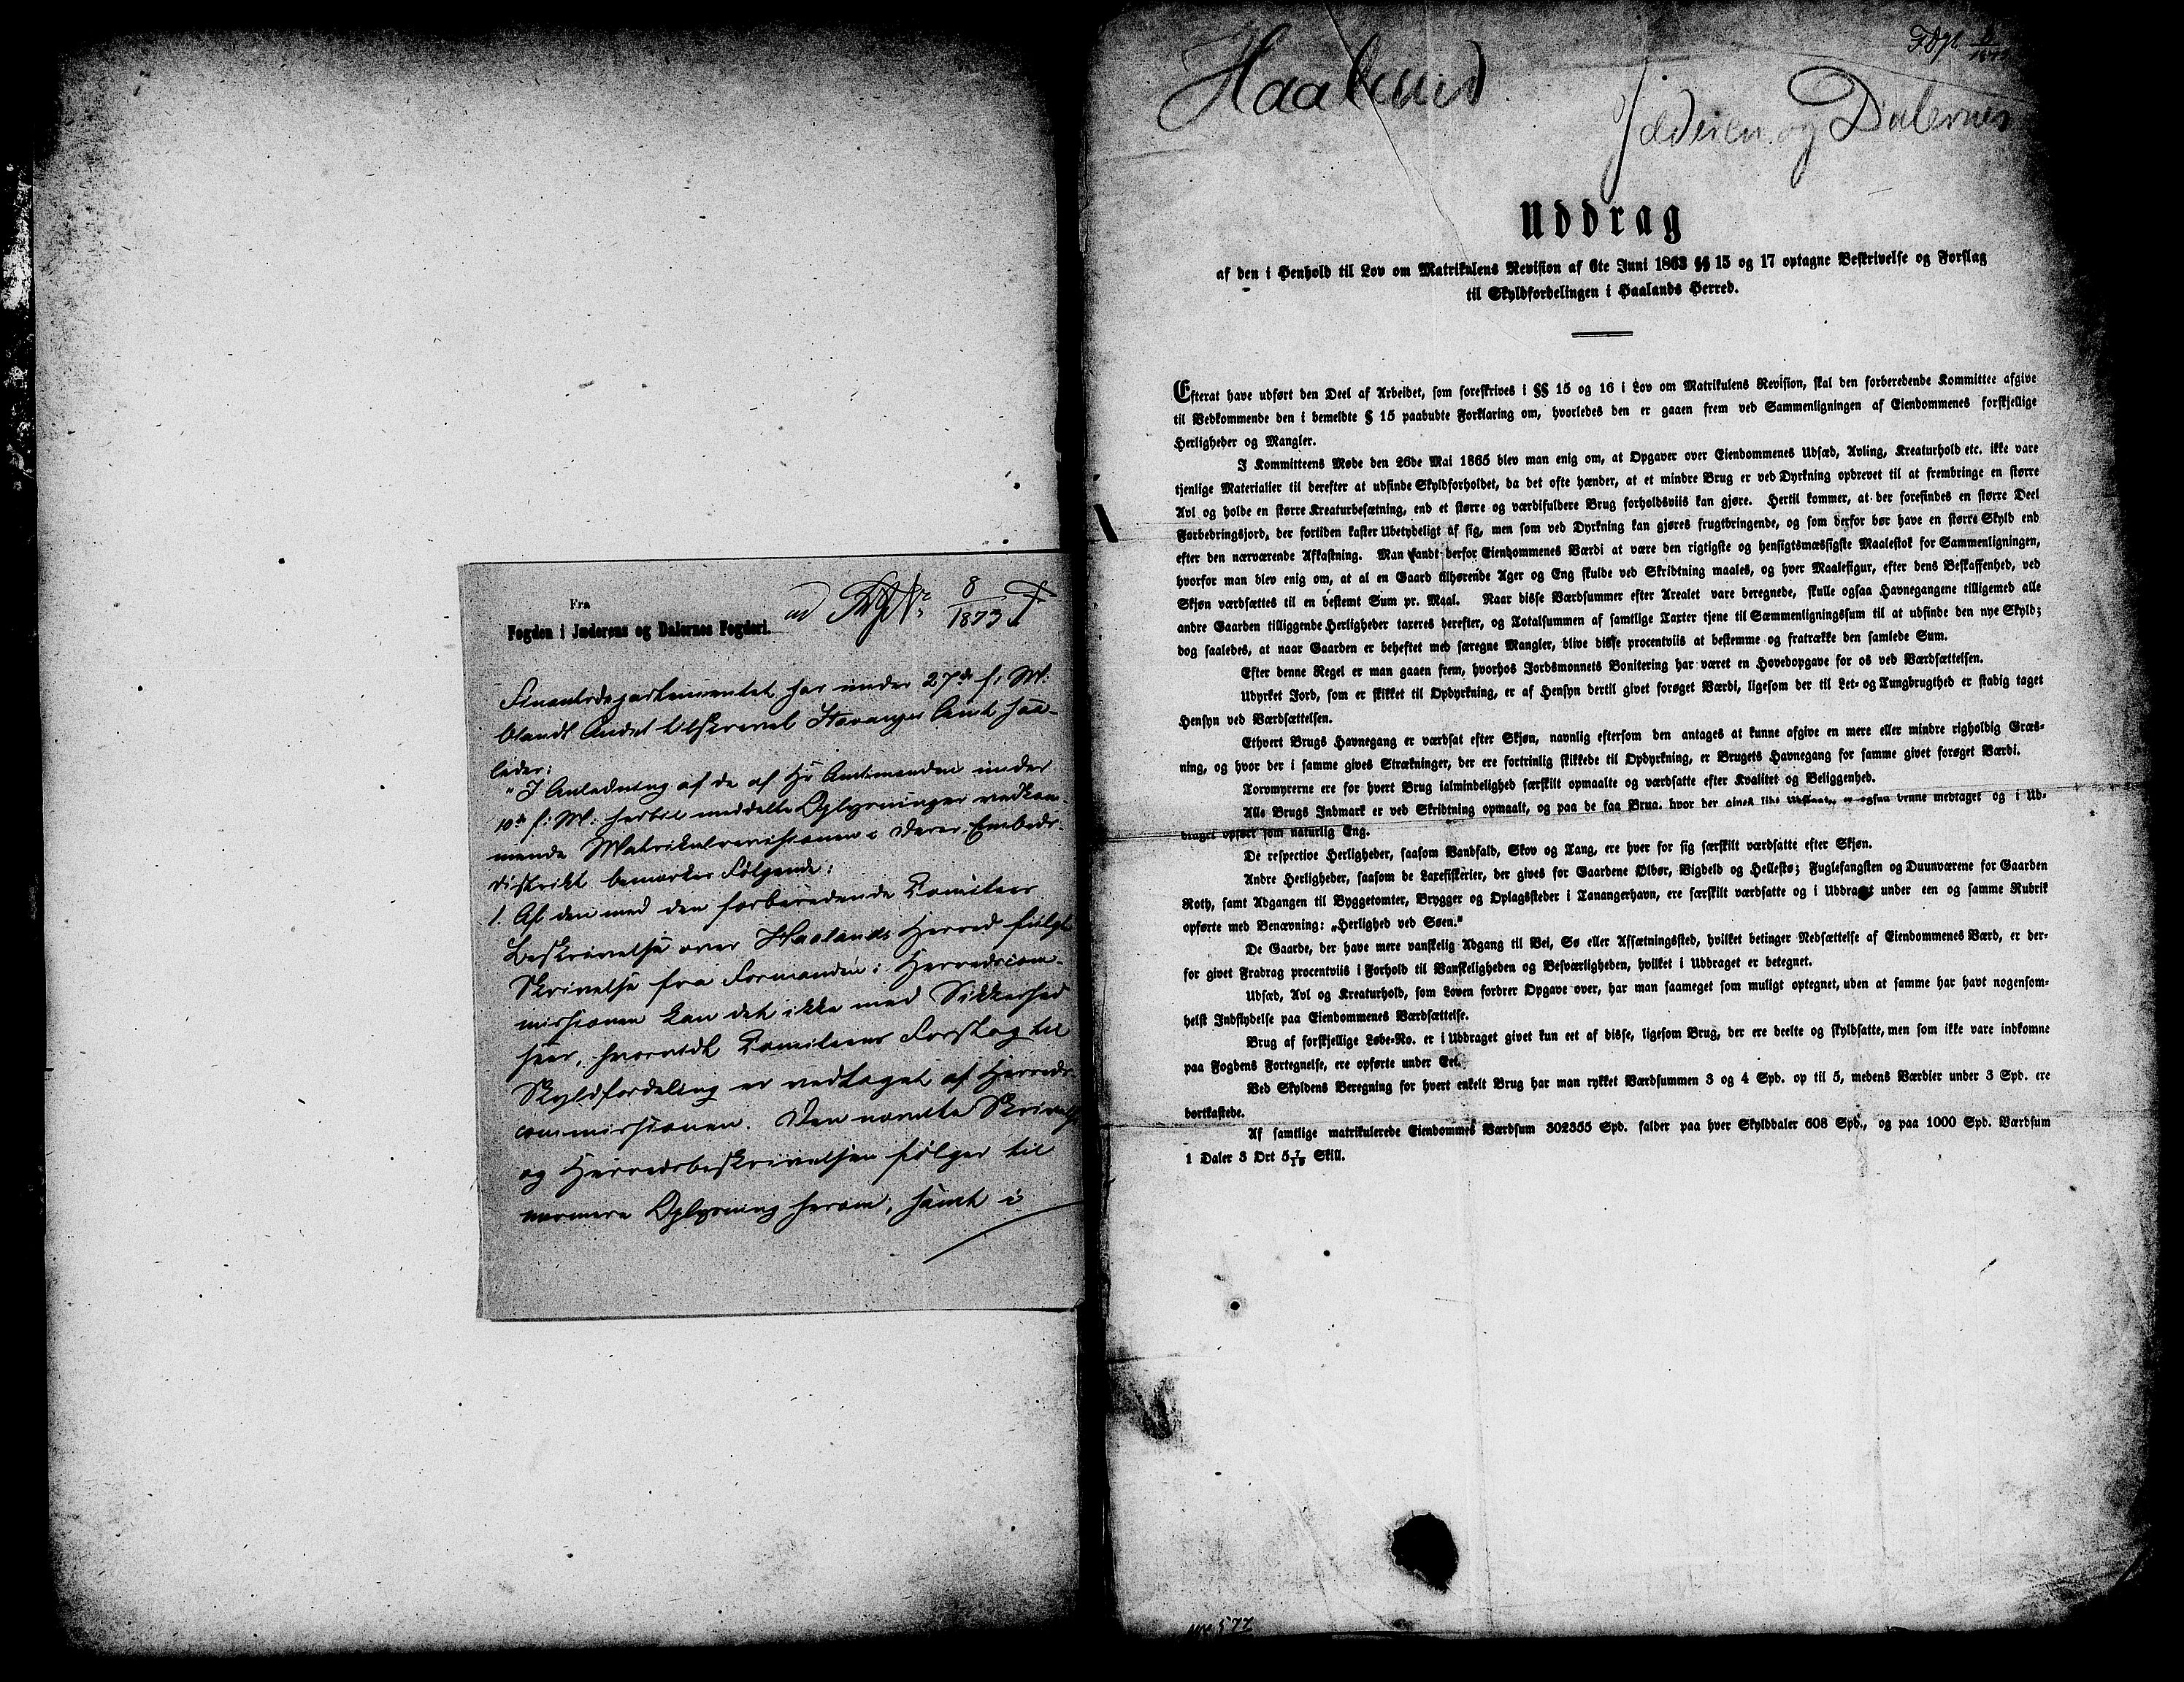 Fra
Fogden i Jæderens og Dalernes Fogderi.
ad 8
1873
Finantsdepartementet har under 27de f: M.
blandt Andet tilskrevet Stavanger Amt saa-
leder:
"I Anledning af de af Hr Amtmanden under
10de f: M: hertil meddelte Oplysninger vedkom-
mende Matrikulrevisionen i Deres Embeds-
distrikt bemærkes Følgende:
1. Af den med den forberedende Comitees
Beskrivelse over Haalands Herred fulgte
Skrivelse fra Formanden i Herredscom-
missionen kan det ikke med Sikkerhed
sees, hvorvidt Comiteens Forslag til
Skyldfordeling er vedtaget af Herreds-
commissionen. Den nævnte Skrivelse
og Herredsbeskrivelsen følger til
nærmere Oplysning herom, samt i
Haaland
Jæderen og Dalernes
Uddrag
af den i Henhold til Lov om Matrikulens Revision af 6te Juni 1863 §§ 15 og 17 optagne Beskrivelse og Forslag
til Skyldfordelingen i Haalands Herred.
Efterat have udført den Deel af Arbeidet, som foreskrives i §§ 15 og 16 i Lov om Matrikulens Revision, skal den forberedende Kommittee afgive
til Vedkommende den i bemeldte § 15 paabudte Forklaring om, hvorledes den er gaaen frem ved Sammenligningen af Eiendommenes forskjellige
Herligheder og Mangler.
I Kommitteens Møde den 26de Mai 1865 blev man enig om, at Opgaver over Eiendommenes Udsæd, Avling, Kreaturhold etc. ikke vare
tjenlige Materialier til derefter at udfinde Skyldforholdet, da det ofte hænder, at et mindre Brug er ved Dyrkning opdrevet til at frembringe en større
Avl og holde en større Kreaturbesætning, end et større og værdifuldere Brug forholdsviis kan gjøre. Hertil kommer, at der forefindes en større Deel
Forbedringsjord, der fortiden kaster Ubetydeligt af sig, men som ved Dyrkning kan gjøres frugtbringende, og som derfor bør have en større Skyld end
efter den nærværende Afkastning. Man fandt derfor Eiendommenes Værdi at være den rigtigste og hensigtsmæssigste Maalestok for Sammenligningen,
hvorfor man blev enig om, at al en Gaard tilhørende Ager og Eng skulde ved Skridtning maales, og hver Maalefigur, efter dens Beskaffenhed, ved
Skjøn værdsættes til en bestemt Sum pr. Maal. Naar disse Værdsummer efter Arealet vare beregnede, skulle ogsaa Havnegangene tilligemed alle
andre Gaarden tilliggende Herligheder taxeres derefter, og Totalsummen af samtlige Taxter tjene til Sammenligningssum til at udfinde den nye Skyld;
dog saaledes, at naar Gaarden er beheftet med særegne Mangler, blive disse procentviis at bestemme og fratrække den samlede Sum.
Efter denne Regel er man gaaen frem, hvorhos Jordsmonnets Bonitering har været en Hovedopgave for os ved Værdsættelsen.
Udyrket Jord, som er skikket til Opdyrkning, er af Hensyn dertil givet forøget Værdi, ligesom der til Let- og Tungbrugthed er stadig taget
Hensyn ved Værdsættelsen.
Ethvert Brugs Havnegang er værdsat efter Skjøn, navnlig eftersom den antages at kunne afgive en mere eller mindre righoldig Græs-
ning, og hvor der i samme gives Strækninger, der ere fortrinlig skikkede til Opdyrkning, er Brugets Havnegang for samme givet forøget Værdi.
Torvmyrerne ere for hvert Brug ialmindelighed særskilt opmaalte og værdsatte efter Kvalitet og Beliggenhed.
Alle Brugs Indmark er ved Skridtning opmaalt, og paa de faa Brug, hvor der gives lidt Udslaat, er ogsaa denne medtaget og i Ud-
draget opført som naturlig Eng.
De respective Herligheder, saasom Vandfald, Skov og Tang, ere hver for sig særskilt værdsatte efter Skjøn.
Andre Herligheder, saasom de Laxefiskerier, der gives for Gaardene Ølbør, Vigdeld og Hellestø; Fuglefangsten og Duunværene for Gaarden
Roth, samt Adgangen til Byggetomter, Brygger og Oplagssteder i Tanangerhavn, ere særskilt værdsatte og i Uddraget under een og samme Rubrik
opførte med Benævning: „Herlighed ved Søen."
De Gaarde, der have mere vanskelig Adgang til Vei, Sø eller Afsætningssted, hvilket betinger Nedsættelse af Eiendommenes Værd, er der-
for givet Fradrag procentviis i Forhold til Vanskeligheden og Besværligheden, hvilket i Uddraget er betegnet.
Udsæd, Avl og Kreaturhold, som Loven fordrer Opgave over, har man saameget som muligt optegnet, uden at samme har havt nogensom-
helst Indflydelse paa Eiendommenes Værdsættelse.
Brug af forskjellige Løbe-No. er i Uddraget givet kun eet af disse, ligesom Brug, der ere deelte og skyldsatte, men som ikke vare indkomne
paa Fogdens Fortegnelse, ere opførte under Eet.
Ved Skyldens Beregning for hvert enkelt Brug har man rykket Værdsummen 3 og 4 Spd. op til 5, medens Værdier under 3 Spd. ere
bortkastede.
Af samtlige matrikulerede Eiendommes Værdsum 302355 Spd. falder paa hver Skylddaler 608 Spd., og paa 1000 Spd. Værdsum
1 Daler 3 Ort 5 7/19 Skill.